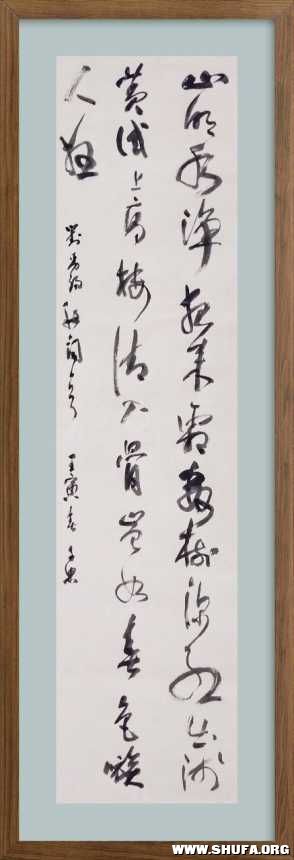 山明水净夜来霜數樹深紅出淺
黄試上高樓清入骨豈如春色嗾
人狂
劉禹錫秋詞 壬寅春
WWW.SHUFA.ORG